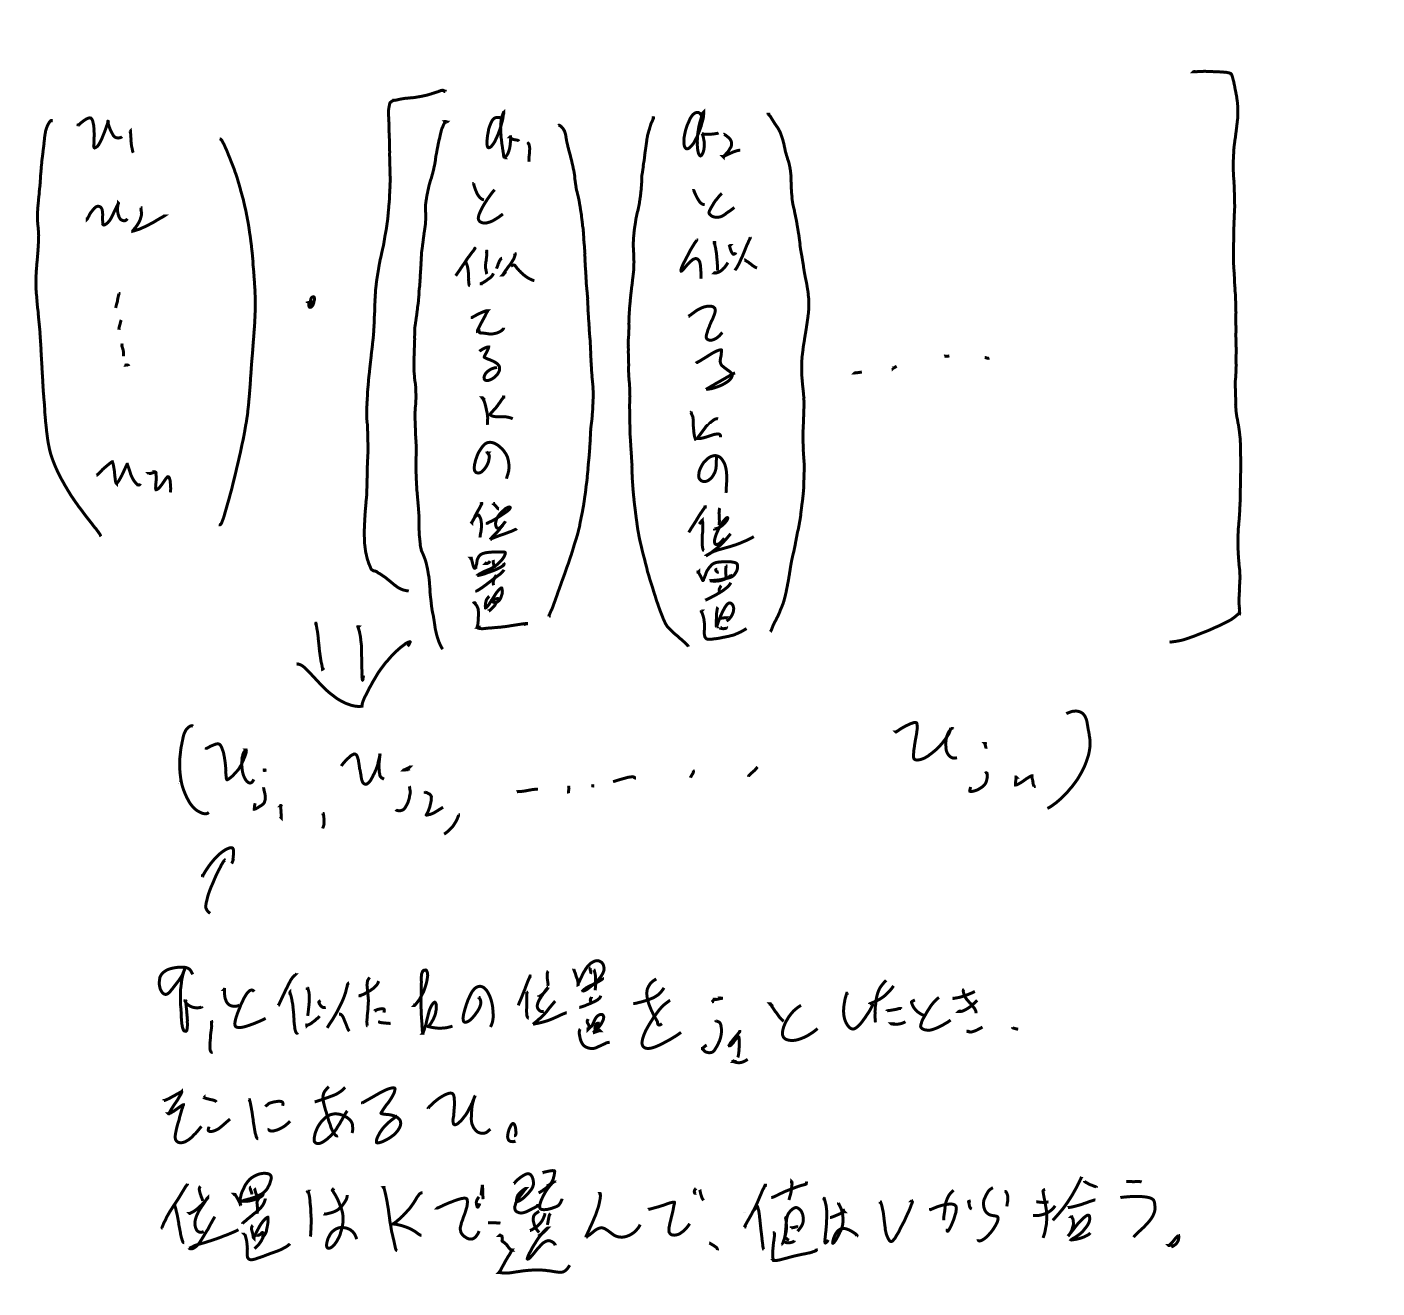 u₁
u₂
⋮
uₙ
·
q₁と似てるKの位置
q₂と似てるKの位置
‥‥
(u_{j₁}, u_{j₂}, ‥‥‥ u_{jₙ})
↑
q₁と似たkの位置をj₁としたとき.
そこにあるu。
位置はKで選んで、値はVから拾う。